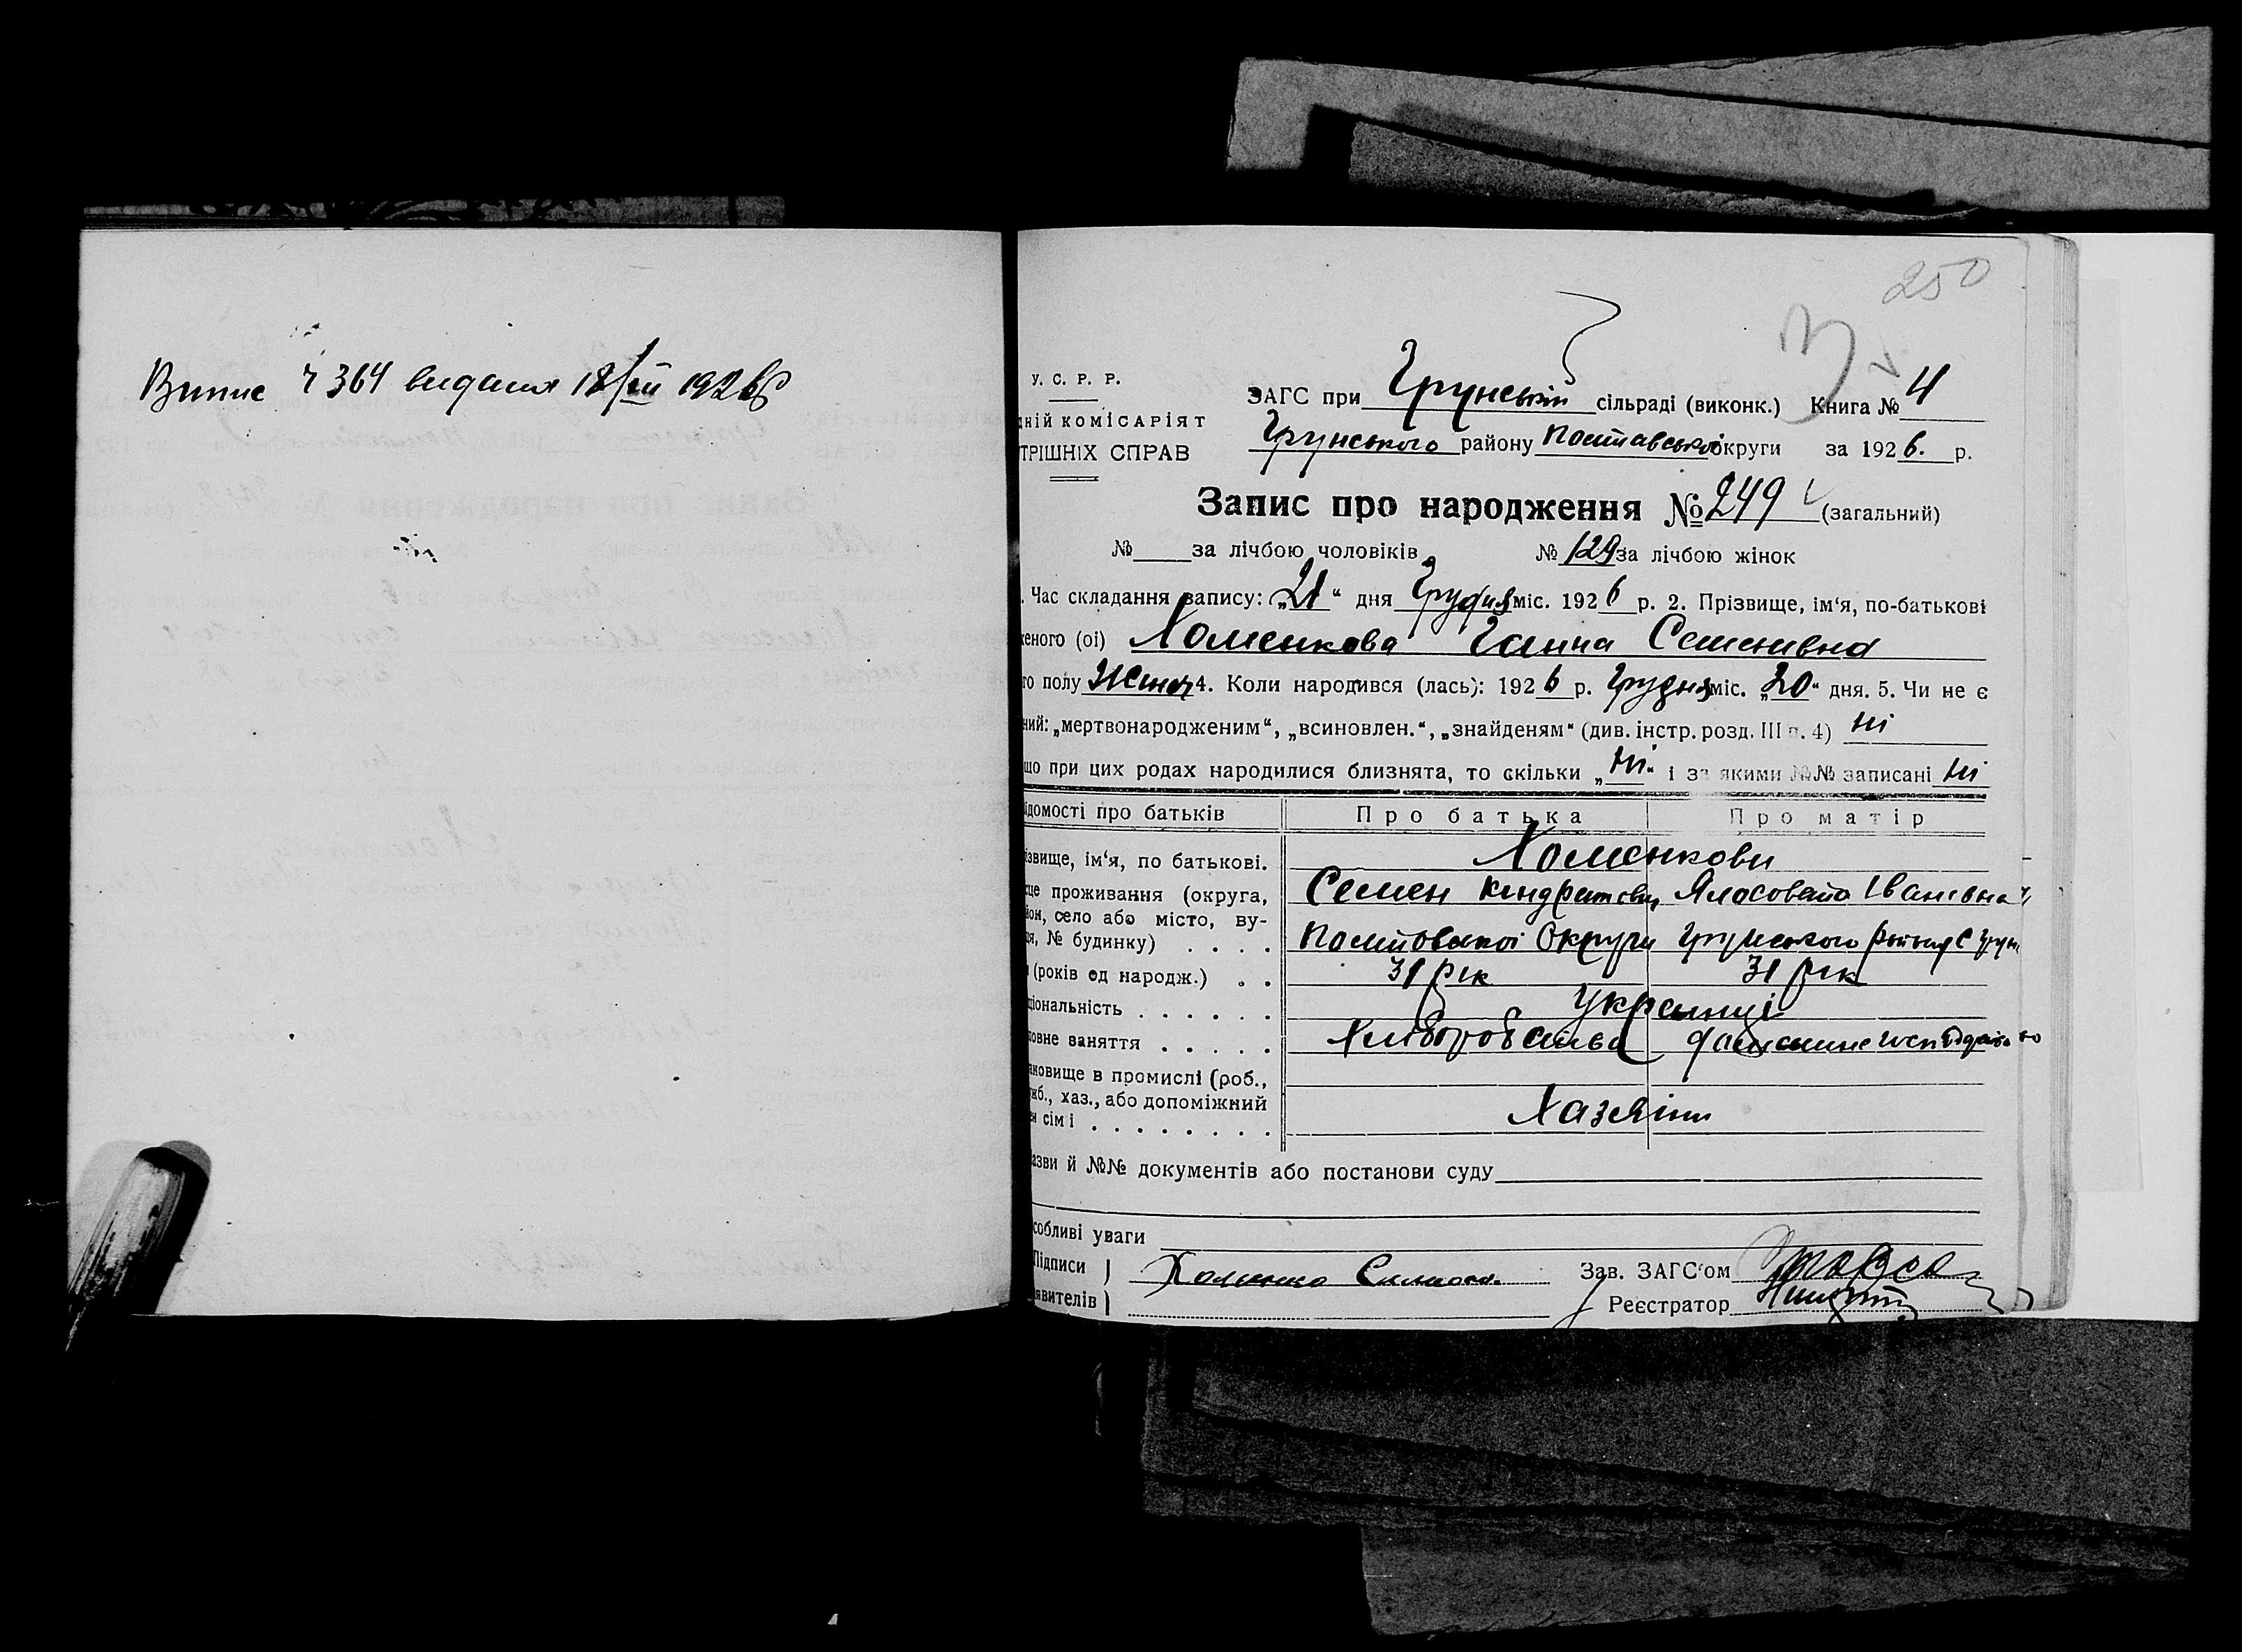 Випис ч 364 видання 18/XII 1926 р
250
У. С. Р. Р.
ЗАГС при Грунській сільраді (виконк.) Книга № 4
дній комісаріят
Грунського району Полтавської округи за 1926. р.
трішніх справ
Запис про народження № 249 (загальний)
№ за лічбою чоловіків № 129 за лічбою жінок
. Час складання запису: „21“ дня Грудня міс. 1926 р. 2. Прізвище, ім‘я, по-батькові
женого (ої) Хоменкова Ганна Семенивна
го полу Жіноч 4. Коли народився (лась): 1926 р. Грудня міс. „20“ дня. 5. Чи не є
ний: „мертвонародженим“, „всиновлен.“, „знайденям“ (див. інстр. розд. III п. 4) ні
що при цих родах народилися близнята, то скільки „ні“ і за якими №№ записані ні
ідомості про батьків Про батька Про матір
ізвище, ім‘я, по батькові. Хоменкови
це проживання (округа, Семен Кіндратович Івановна
йон, село або місто, ву-
я, № будинку) . . . . Округи Грунського району С Грунь
(років од народж.) . . 31 рік 31 рік
ціональність . . . . . . Украинці
овне заняття . . . . . Хліборобство
ановище в промислі (роб.,
жб., хаз., або допоміжний Хазяіни
н сімі . . . . . . . .
азви й №№ документів або постанови суду
собливі уваги
Підписи } Хоменко Зав. ЗАГС‘ом
явителів } Реєстратор